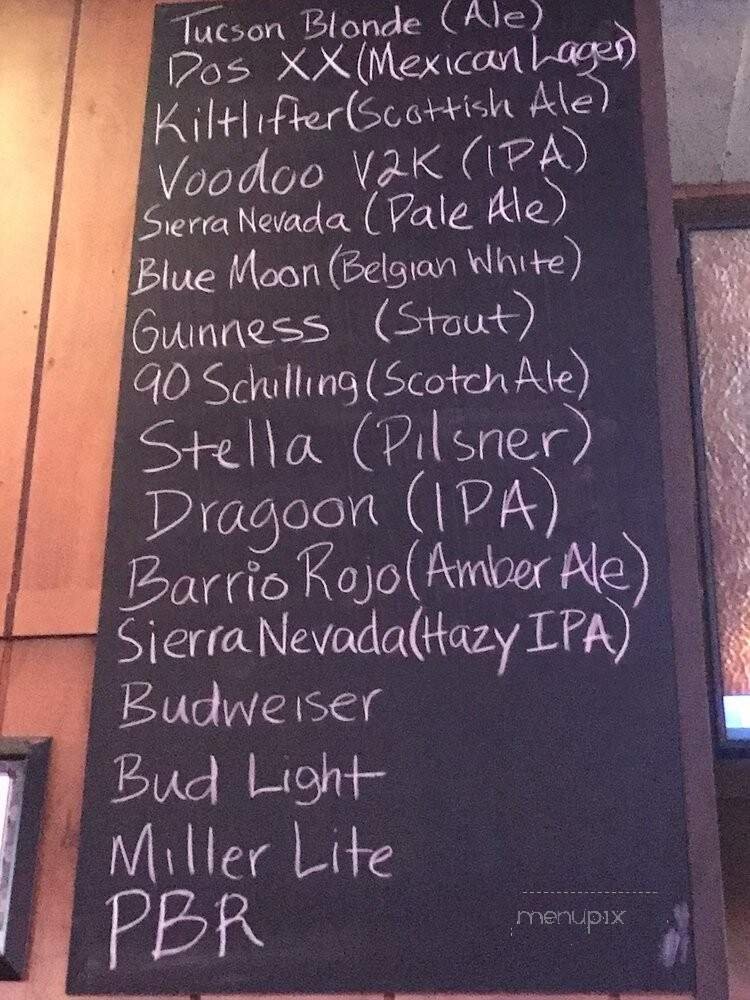 Tucson Blonde (Ale)
Dos XX (Mexican Lager)
Kiltlifter (Scottish Ale)
Voodoo V2K (IPA)
Sierra Nevada (Pale Ale)
Blue Moon (Belgian White)
Guinness (Stout)
90 Schilling (Scotch Ale)
Stella (Pilsner)
Dragoon (IPA)
Barrio Rojo (Amber Ale)
Sierra Nevada (Hazy IPA)
Budweiser
Bud Light
Miller Lite
PBR
menupix